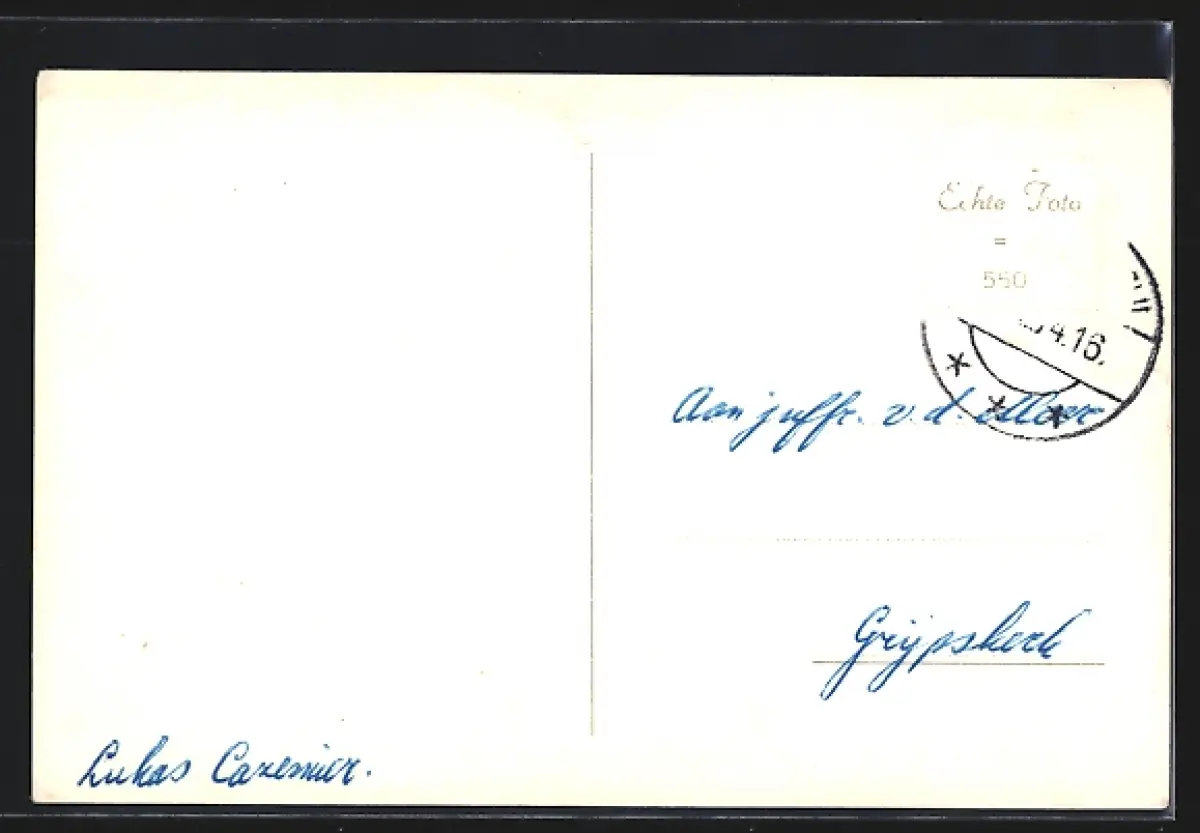 Echte Foto
=
550
4.16.
Aan juffr. v. d. Meer
Grijpskerk
Lukas Cazemier.